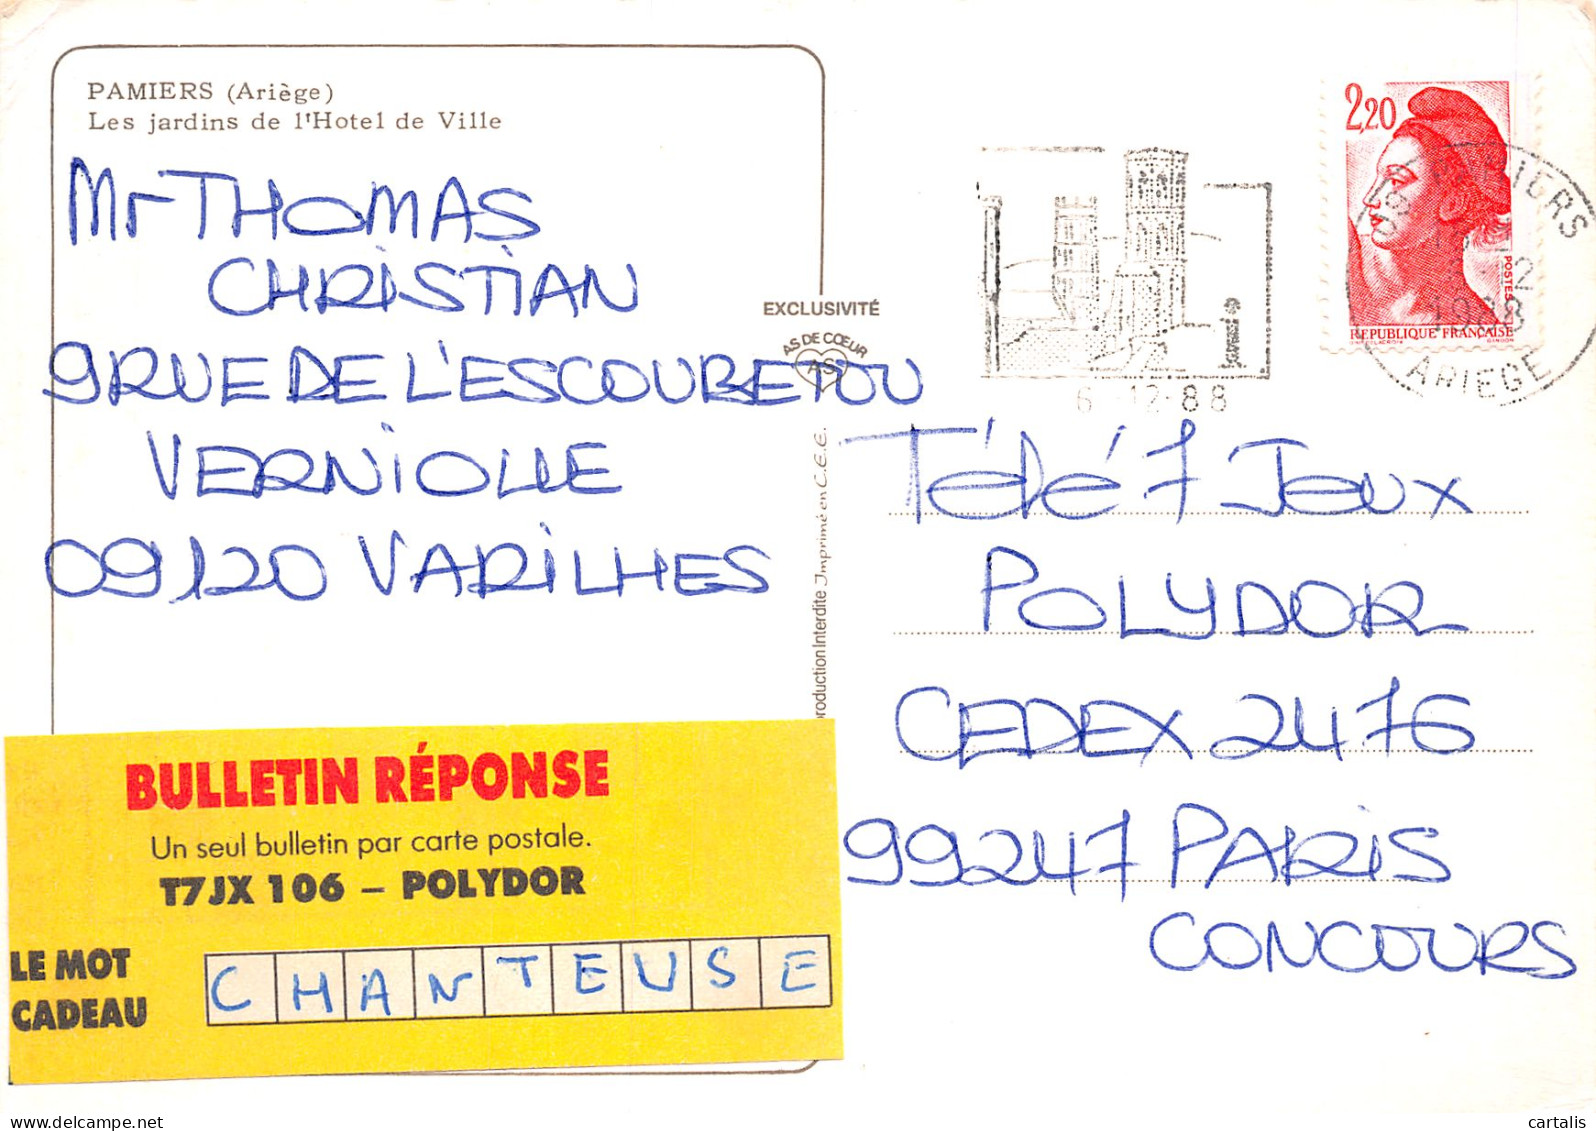 PAMIERS (Ariège)
Les jardins de l'Hotel de Ville
Mr THOMAS
CHRISTIAN
9 RUE DE L'ESCOUBETOU
VERNIOLLE
09120 VARILHES
EXCLUSIVITÉ
AS DE CŒUR
AS
production Interdite Imprimé en C.E.E.
2,20
POSTES
REPUBLIQUE FRANÇAISE
GANDON
1988
ARIEGE
6 -12-88
Télé 7 Jeux
POLYDOR
CEDEX 2476
99247 PARIS
CONCOURS
BULLETIN RÉPONSE
Un seul bulletin par carte postale.
T7JX 106 – POLYDOR
LE MOT
CADEAU
CHANTEUSE
delcampe.net
cartalis